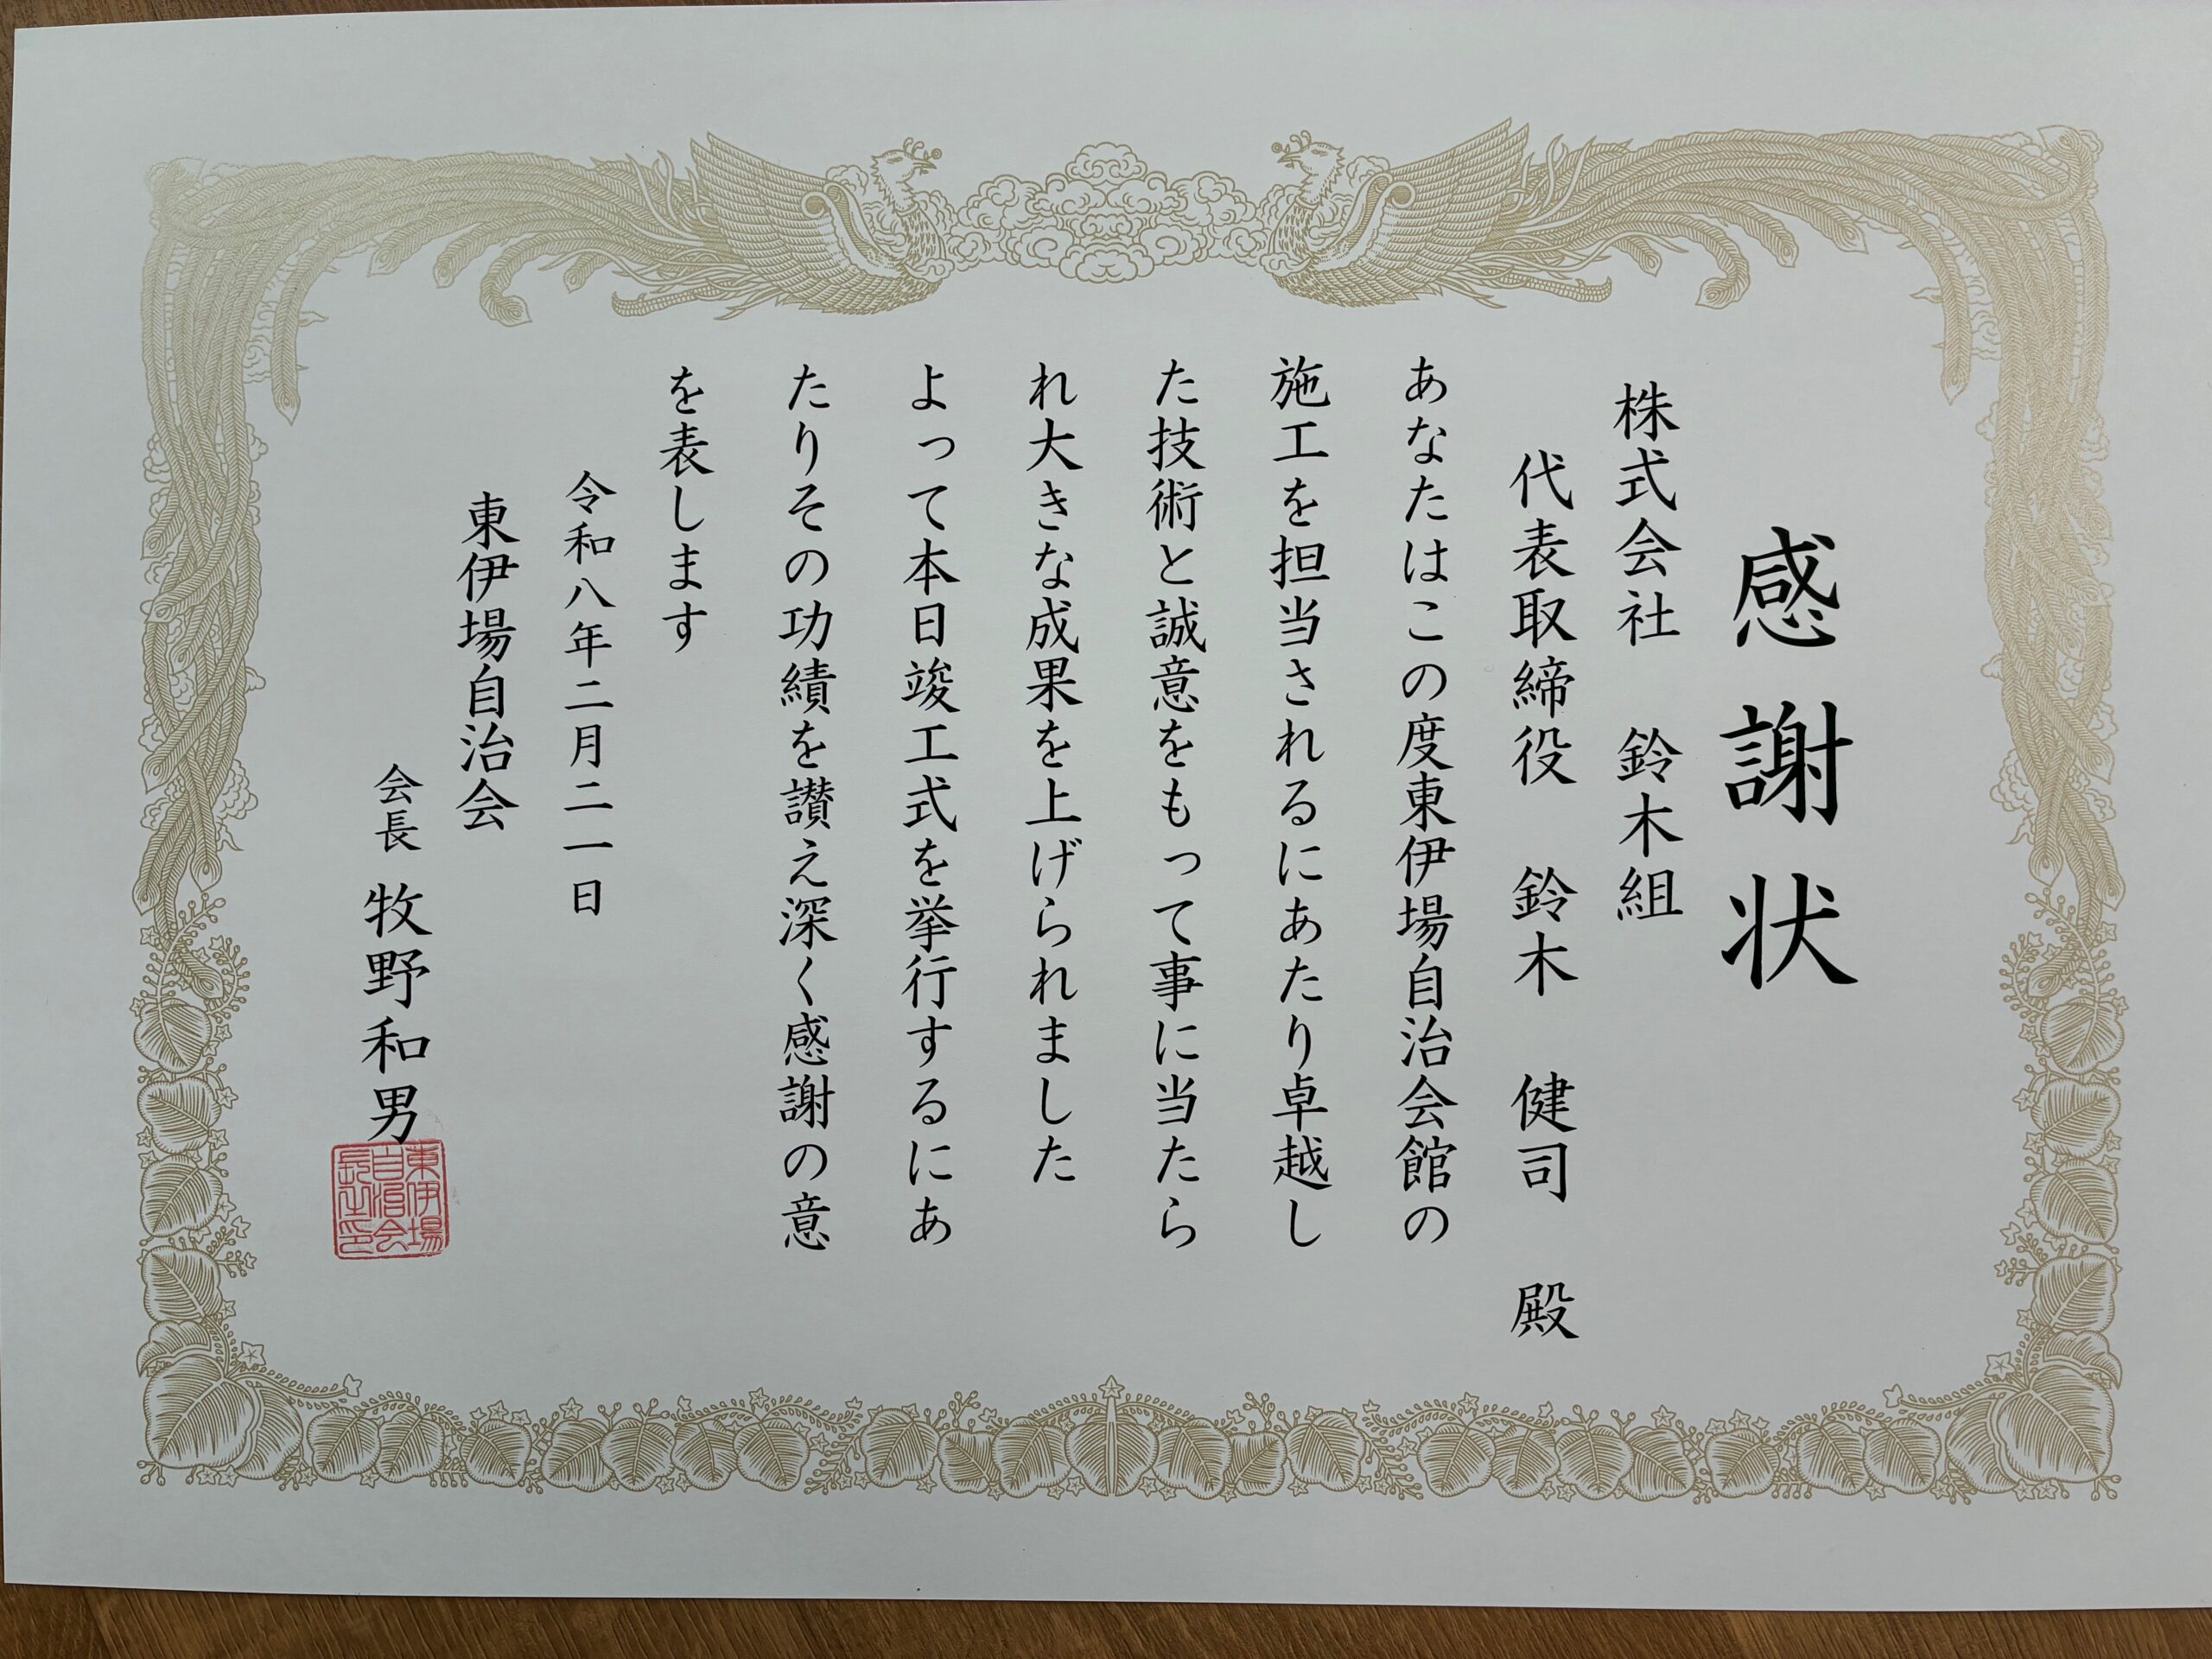 感謝状
株式会社 鈴木組
代表取締役 鈴木 健司 殿
あなたはこの度東伊場自治会館の
施工を担当されるにあたり卓越し
た技術と誠意をもって事に当たら
れ大きな成果を上げられました
よって本日竣工式を挙行するにあ
たりその功績を讃え深く感謝の意
を表します
令和八年二月二一日
東伊場自治会
会長 牧野和男
東伊場
自治会
長之印